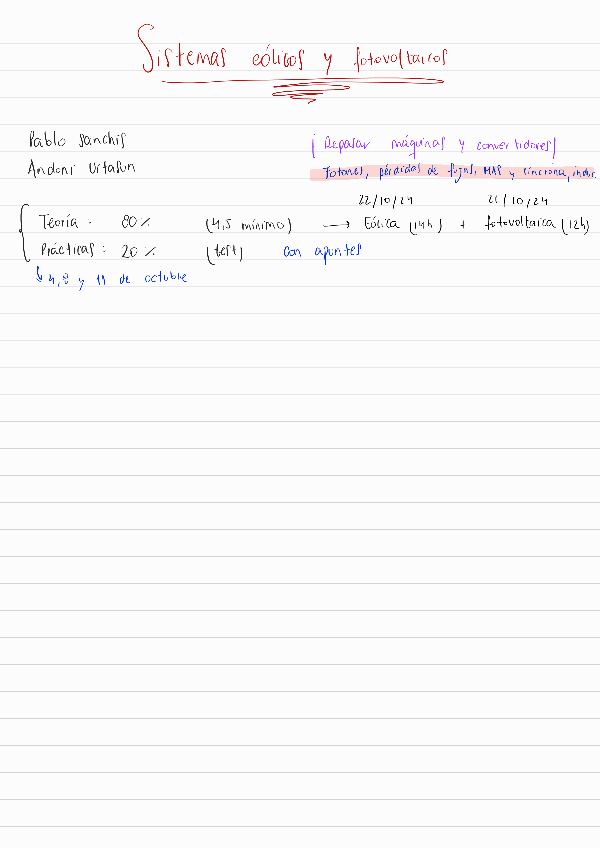 Sistemas eólicos y fotovoltaicos
Pablo Sanchis
¡Repasar máquinas y convertidores!
Andoni Urtasun
pérdidas de MAS y síncrona,
22/10/24 21/10/24
Teoría: 80% (4,5 mínimo) → Eólica (14h) + fotovoltaica (12h)
Prácticas: 20% (test) con apuntes
↳ 4, 8 y 11 de octubre